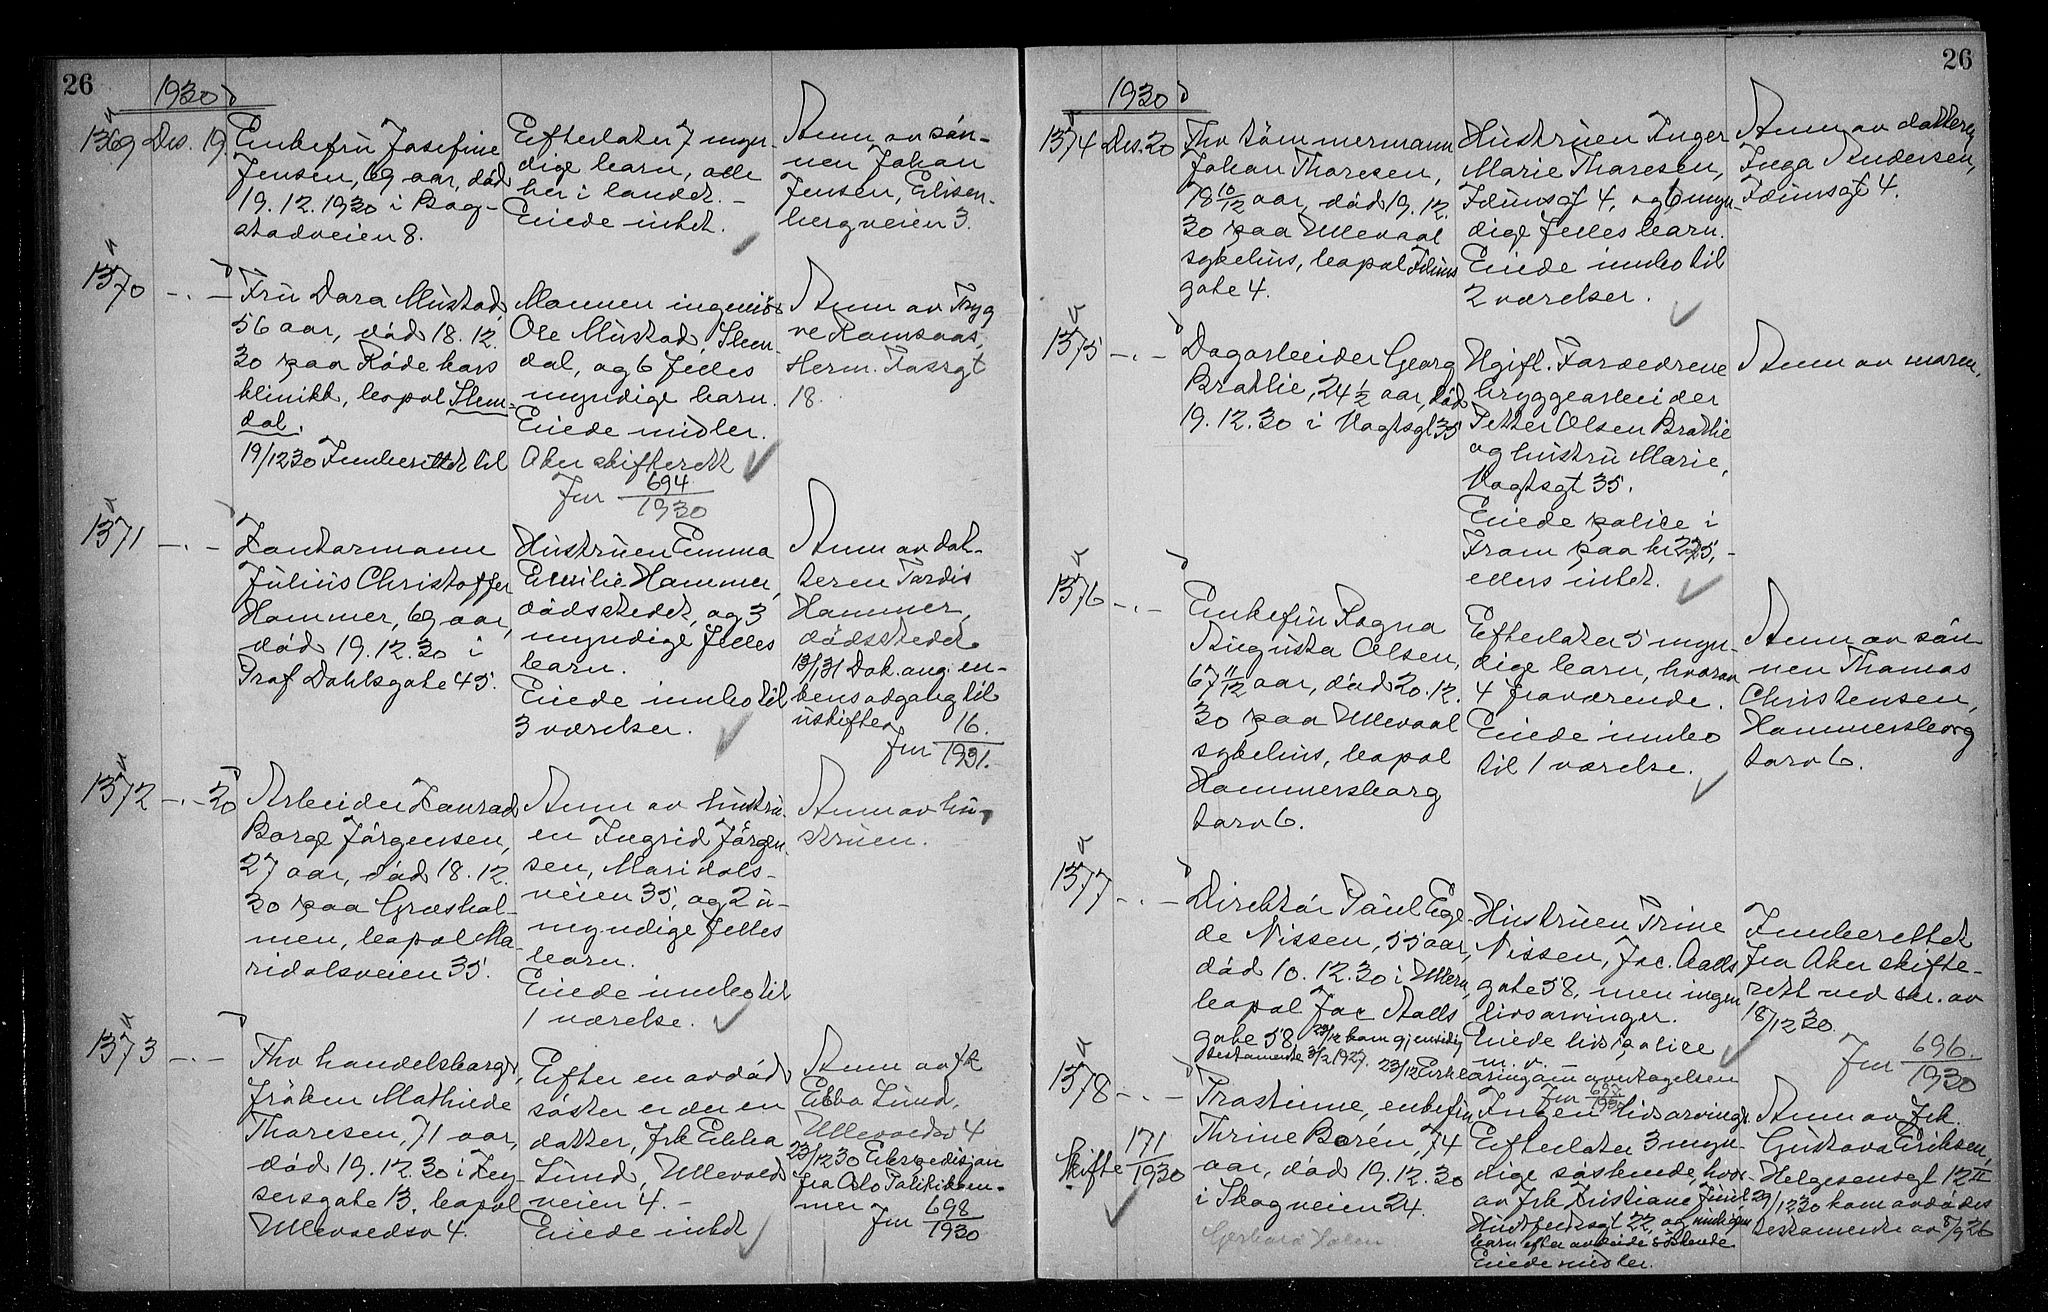 26
1930
1369 Des. 19.
Enkefru Josefine
Jensen, 69 aar, död
19.12.1930 i Bog-
stadveien 8.
Efterlater 7 myn-
dige barn, alle
her i landet. -
Eiede intet.
Anm. av søn-
nen Johan
Jensen, Eilisen-
bergveien 3.
1370 - . -
Fru Dora Mustad,
56 aar, død 18.12.
30 paa Røde kors
klinikk, bopæl Slem-
dal.
19/12 30 Innberettet til
Mannen ingeniör
Ole Mustad, Slem-
dal, og 6 felles
myndige barn.
Eiede midler.
Aker skifterett
Jnr 694/1930
Anm. av Tryg
ve Ramsaas,
Herm. Fossgt
18.
1371 - . -
Kontormann
Julius Christoffer
Hammer, 69 aar,
død 19.12.30 i
Prof. Dahlsgate 45.
Hustruen Emma
Emilie Hammer,
dödsstedet, og 3
myndige felles
barn.
Eiede innbo til
3 værelser.
Anm. av dat-
teren Tordis
Hammer,
dödsstedet
13/1 31 Dok. ang. en-
kens adgang til
uskifte
Jnr 16./1931.-
1372 - . - 20
Arbeider Konrad
Borge Jörgensen,
27 aar, död 18.12.
30 paa Græshol-
men, bopæl Ma-
ridalsveien 35.
Anm. av hustru-
en Ingrid Jörgen-
sen, Maridals-
veien 35, og 2 u-
myndige felles
barn.
Eiede innbo til
1 værelse.
Anm. av hu-
struen.
1373 - . -
Fhv handelsborger,
fröken Mathilde
Thoresen, 71 aar,
död 19.12.30 i Key-
sersgate 13, bopæl
Ullevoldsv 4.
Efter en avdöd
söster er der en
datter, frk Ebba
Lund, Ullevolds
veien 4. -
Eiede intet
Anm av frk
Ebba Lund,
Ullevoldsv 4
23/12 30 Ekspedisjon
fra Oslo Politikam-
mer
Jnr 698/1930
26
1930
1374 Des. 20
Fhv tömmermann
Johan Thoresen,
78 10/12 aar, död 19.12.
30 paa Ullevaal
sykehus, bopæl Iduns
gate 4.
Hustruen Inger
Marie Thoresen,
Idunsgt 4, og 6 myn-
dige felles barn.
Eiede innbo til
2 værelser.
Anm. av datteren
Inga Andersen,
Idunsgt 4.
1375 - . -
Dagarbeider Georg
Bratlie, 24 1/2 aar, död
19.12.30 i Vogtsgt 35
Ugift. Foreldrene
bryggearbeider
Petter Olsen Bratlie
og hustru Marie,
Vogtsgt 35.
Eiede police i
Fram paa kr 225, -
ellers intet.
Anm av moren.
1376 - . -
Enkefru Ragna
Augusta Olsen,
67 11/12 aar, död 20.12.
30 paa Ullevaal
sykehus, bopæl
Hammersborg
torv 6.
Efterlater 5 myn-
dige barn, hvorav
4 fraværende.
Eiede innbo
til 1 værelse.
Anm av sön-
nen Thomas
Christensen,
Hammersborg
torv 6.
1377 - . -
Direktör Paul Ege-
de Nissen, 55 aar,
död 10.12.30 i Ullern,
bopæl Jac Aalls
gate 58
testamente 3/2 1927.
23/12 Erklæring om overtagelsen
Jnr 697/1930
Hustruen Trine
Nissen, Jac. Aalls
gate 58, men ingen
livsarvinger.
Eiede livspolice
m. v.
Innberettet
fra Aker skifte-
rett ved skr. av
18/12 30.
Jnr 696./1930
1378 - . -
Skifte 171/1930
Frostinne, enkefru
Thrine Borén, 74
aar, död 19.12.30
i Skogveien 24.
Ingen livsarvinger
Efterlater 3 myn-
dige söskende, hvor-
av frk Kristiane Juul
22, og
barn efter avdöde söskende
Eiede midler.
Anm av frk.
Gustava Eriksen,
Helgesensgt 12 II
29/12 30 kom avdödes
testamente av 8/9 26